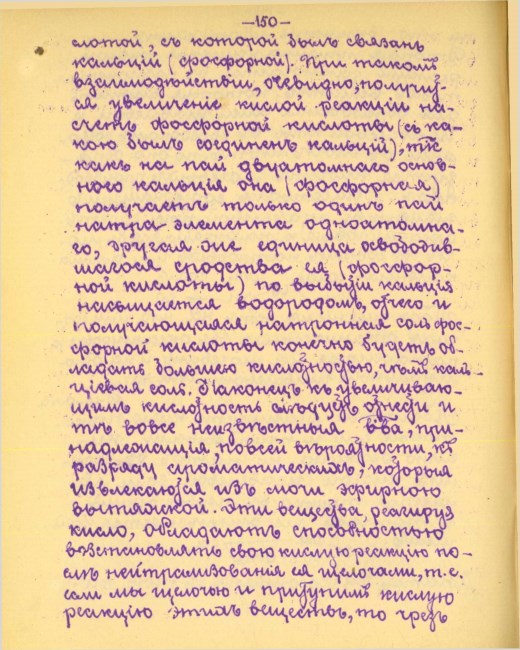 —150—
слотой, съ которой былъ связанъ
кальцій (фосфорной). При такомъ
взаимодѣйствіи, очевидно, получит-
ся увеличеніе кислой реакціи на-
счетъ фосфорной кислоты (съ ка-
кою былъ соединенъ кальцій), т.к.
какъ на пай двуатомнаго основ-
ного кальція она (фосфорная)
получаетъ только одинъ пай
натра элемента одноатомна-
го, другая же единица освободив-
шагося сродства ея (фосфор-
ной кислоты) по выбытіи кальція
насыщается водородомъ, отчего и
получающаяся натронная соль фос-
форной кислоты конечно будетъ об-
ладать большею кислотностью, чѣмъ каль-
ціевая соль. Наконецъ къ увеличиваю-
щимъ кислотность слѣдуетъ отнести и
тѣ вовсе неизвѣстныя в-ва, при-
надлежащія, по всей вѣроятности, къ
разряду ароматическихъ, которыя
извлекаются изъ мочи эфирною
вытяжкой. Эти вещества, реагируя
кисло, обладаютъ способностью
возстановлять свою кислую реакцію по-
слѣ нейтрализованія ея щелочами, т.е.
если мы щелочью и притупимъ кислую
реакцію этихъ веществъ, то чрезъ